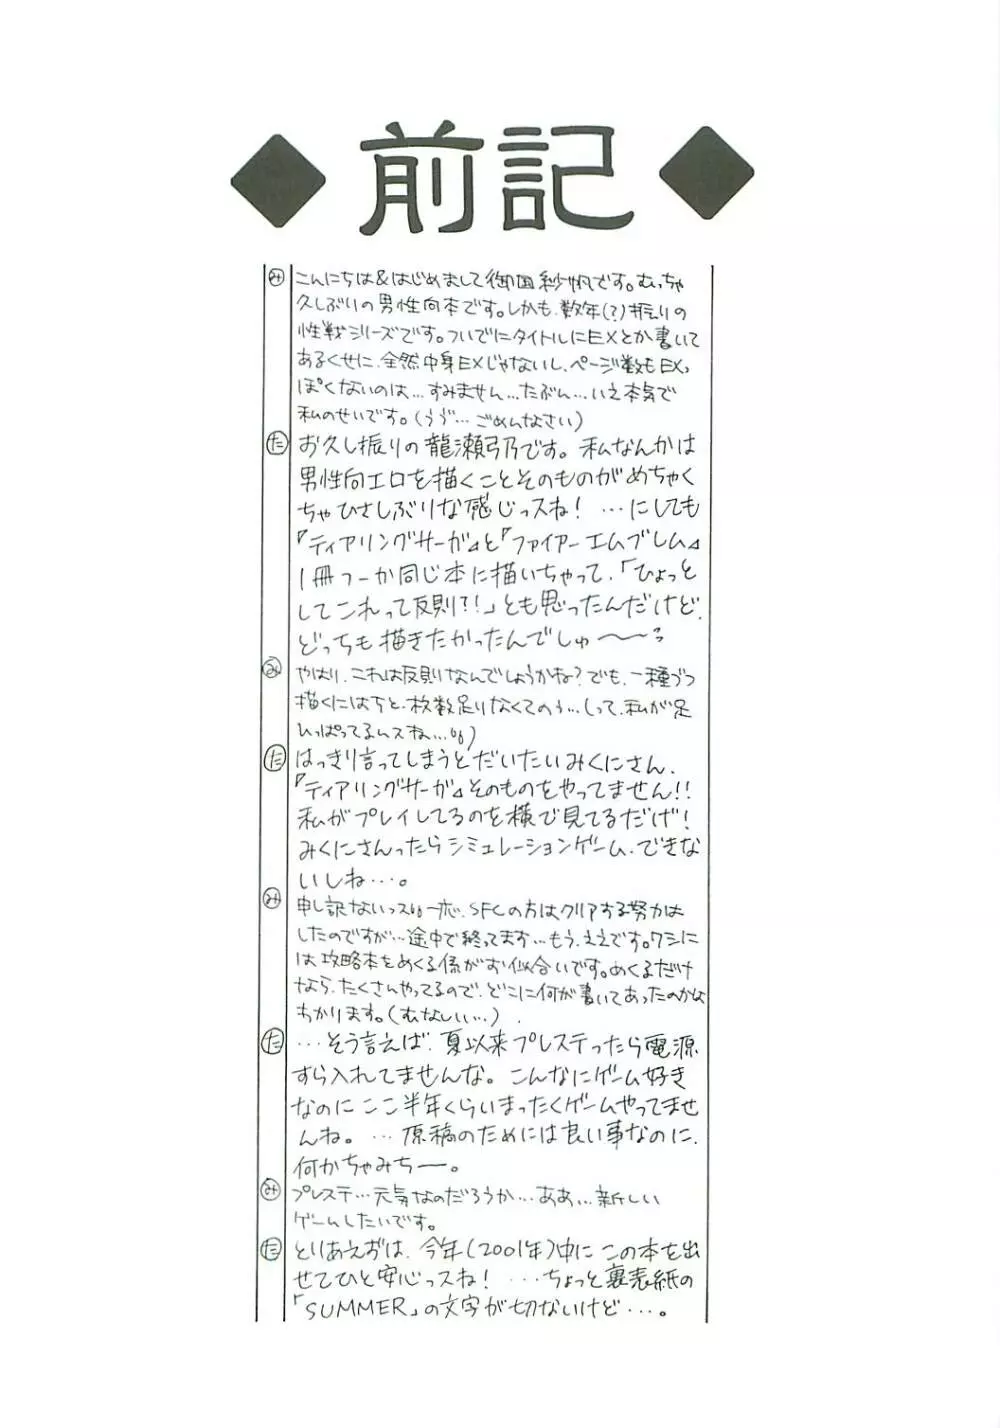 ◆前記◆
み こんにちは&はじめまして御国紗帆です。むっちゃ
久しぶりの男性向本です。しかも、数年(?)振りの
性戦シリーズです。ついでにタイトルにEXとか書いて
あるくせに、全然中身EXじゃないし、ページ数もEXっ
ぽくないのは…すみません…たぶん…いえ本気で
私のせいです。(うう゛…ごめんなさい)
た お久し振りの龍瀬弓乃です。私なんかは
男性向エロを描くことそのものがめちゃく
ちゃひさしぶりな感じっスね! …にしても
『ティアリングサーガ』と『ファイアーエムブレム』
1冊つーか同じ本に描いちゃって、「ひょっと
してこれって反則?!」とも思ったんだけど、
どっちも描きたかったんでしゅ〜〜っ
み やはり、これは反則なんでしょうかね?でも、一種づつ
描くにはちと、枚数足りなくてのう…(って、私が足
ひっぱってるんスね…)
た はっきり言ってしまうとだいたいみくにさん、
『ティアリングサーガ』そのものをやってません!!
私がプレイしてるのを横で見てるだけ!
みくにさんったらシミュレーションゲーム、できな
いしね…。
み 申し訳ないっス 一応、SFCの方はクリアする努力は
したのですが…途中で終ってます…もう、ええです。ワシに
は攻略本をめくる係がお似合いです。めくるだけ
なら、たくさんやってるので、どこに何が書いてあったのかな
わかります。(むなしい…)
た …そう言えば、夏以来プレステったら電源
すら入れてませんな。こんなにゲーム好き
なのにここ半年くらいまったくゲームやってませ
んね。…原稿のためには良い事なのに、
何かちゃみちー。
み プレステ…元気なのだろうか…ああ…新しい
ゲームしたいです。
た とりあえずは、今年(2001年)中にこの本を出
せてひと安心っスね! …ちょっと裏表紙の
「SUMMER」の文字が切ないけど…。